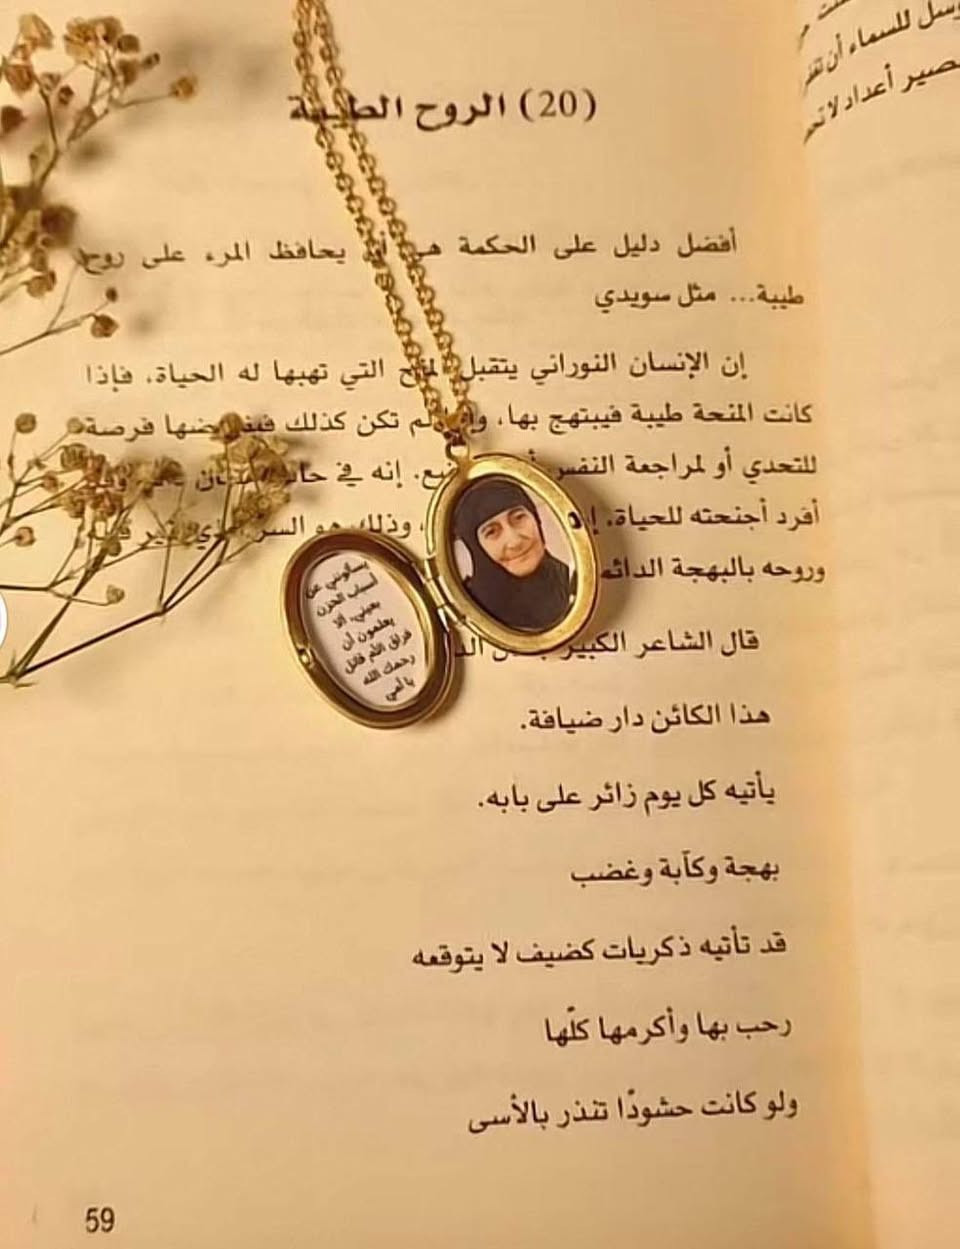 (20) الروح الطيبة
أفضل دليل على الحكمة هي أن يحافظ المرء على روح
طيبة... مثل سويدي
إن الإنسان النوراني يتقبل المنح التي تهبها له الحياة، فإذا
كانت المنحة طيبة فيبتهج بها، وإن لم تكن كذلك فيفوضها فرصة
للتحدي أو لمراجعة النفس إنه في
أفرد أجنحته للحياة. وذلك هو السر
وروحه بالبهجة الدائمة
قال الشاعر الكبير
هذا الكائن دار ضيافة.
يأتيه كل يوم زائر على بابه.
بهجة وكآبة وغضب
قد تأتيه ذكريات كضيف لا يتوقعه
رحب بها وأكرمها كلّها
ولو كانت حشودًا تنذر بالأسى
59
يسألونني عن
أسباب الحزن
بعيني، ألا
يعلمون أن
فراق الأم قاتل
رحمك الله
يا أمي
للسماء أن
أعداد لا